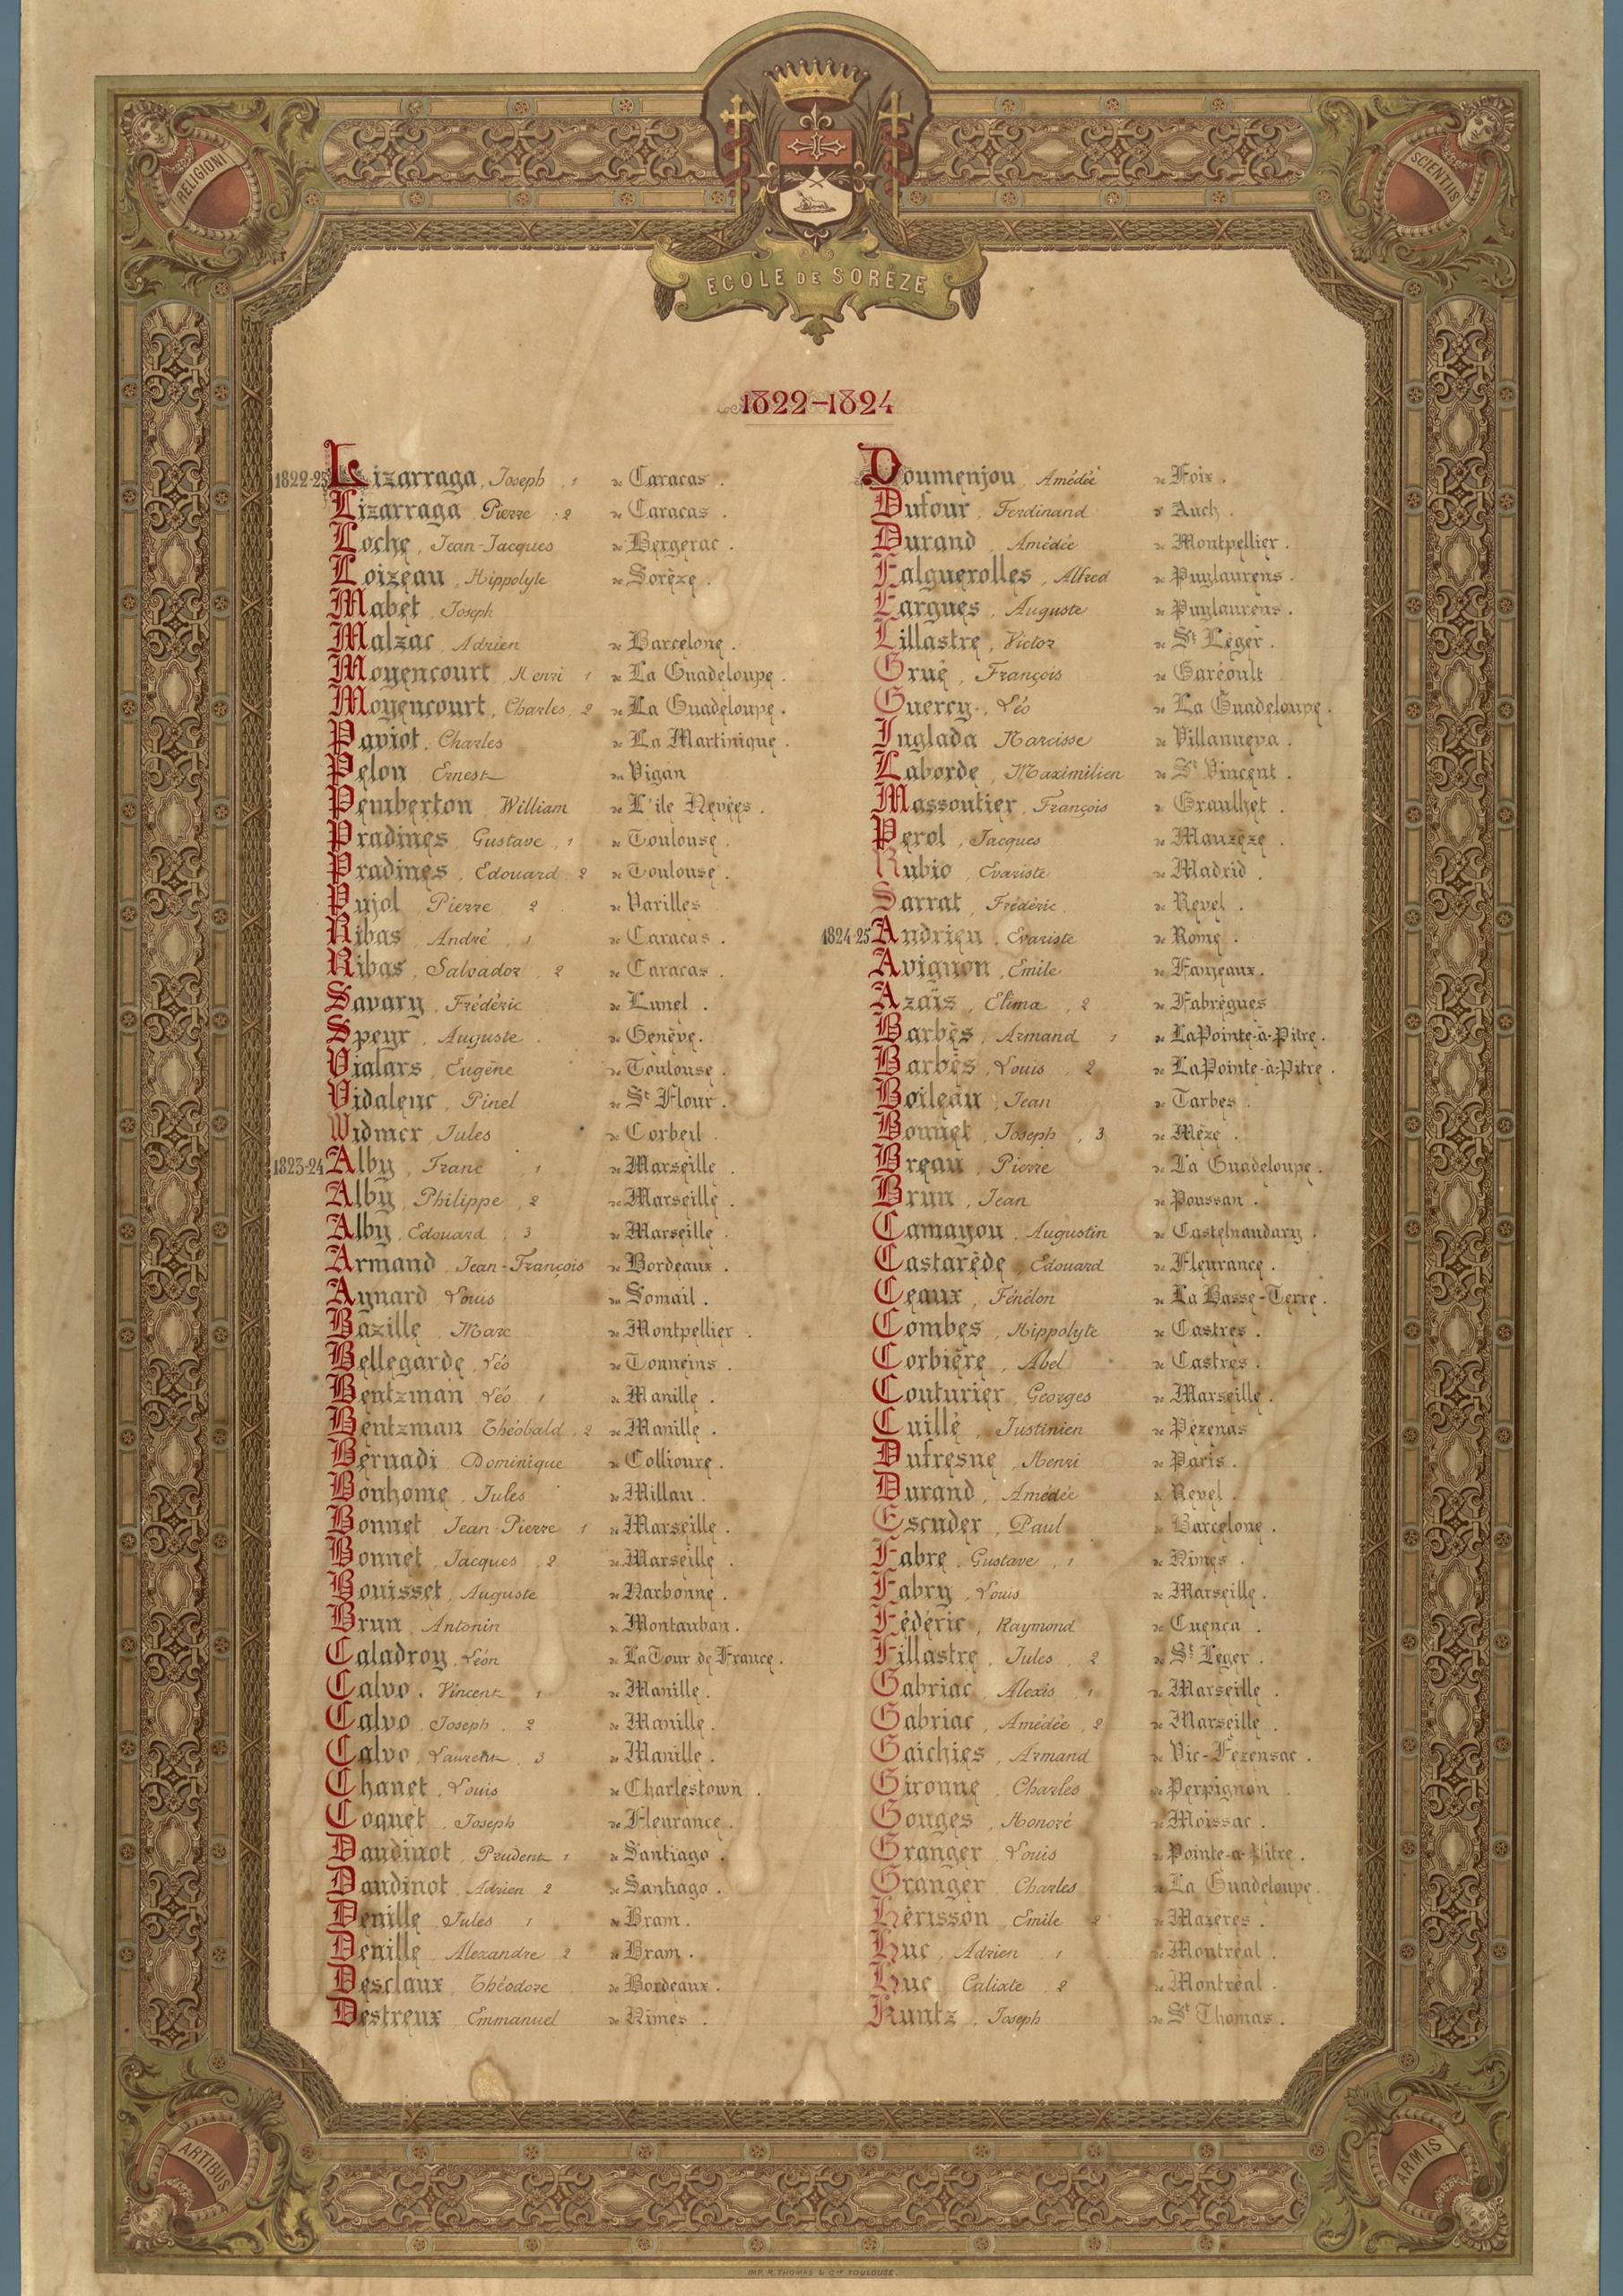 RELIGIONI
SCIENTIIS
ECOLE DE SORÈZE
1822-1824
1822-23 Lizarraga, Joseph, 1 de Caracas.
Lizarraga, Pierre, 2 de Caracas.
Loche, Jean-Jacques de Bergerac.
Loizeau, Hippolyte de Sorèze.
Mabet, Joseph
Malzac, Adrien de Barcelone.
Moyencourt, Henri 1 de La Guadeloupe.
Moyencourt, Charles, 2 de La Guadeloupe.
Paviot, Charles de La Martinique.
Pelon, Ernest du Vigan
Pemberton, William de L'île Nevées.
Pradines, Gustave, 1 de Toulouse.
Pradines, Edouard, 2 de Toulouse.
Pujol, Pierre, 2 de Varilles
Ribas, André, 1 de Caracas.
Ribas, Salvador, 2 de Caracas.
Savary, Frédéric de Lunel.
Speyr, Auguste. de Genève.
Vialars, Eugène de Toulouse.
Vidalenc, Pinel de St Flour.
Widmer, Jules de Corbeil.
1823-24 Alby, Franc, 1 de Marseille.
Alby, Philippe, 2 de Marseille.
Alby, Edouard, 3 de Marseille.
Armand, Jean-François de Bordeaux.
Aynard, Louis du Somail.
Bazille, Marc de Montpellier.
Bellegarde, Léo de Tonneins.
Bentzman, Léo, 1 de Manille.
Bentzman, Théobald, 2 de Manille.
Bernadi, Dominique de Collioure.
Bonhome, Jules de Millau.
Bonnet, Jean-Pierre, 1 de Marseille.
Bonnet, Jacques, 2 de Marseille.
Bouisset, Auguste de Narbonne.
Brun, Antonin de Montauban.
Caladroy, Léon de La Tour de France.
Calvo, Vincent, 1 de Manille.
Calvo, Joseph, 2 de Manille.
Calvo, Laurent, 3 de Manille.
Chanet, Louis de Charlestown.
Coquet, Joseph de Fleurance.
Daudinot, Prudent, 1 de Santiago.
Daudinot, Adrien 2 de Santiago.
Denille, Jules, 1 de Bram.
Denille, Alexandre, 2 de Bram.
Desclaux, Théodore de Bordeaux.
Destreux, Emmanuel de Nîmes.
Doumenjou, Amédée de Foix.
Dufour, Ferdinand d' Auch.
Durand, Amédée de Montpellier.
Falguerolles, Alfred de Puylaurens.
Fargues, Auguste de Puylaurens.
Lillastre, Victor de St Léger.
Grué, François de Garéoult
Guercy, Léo de La Guadeloupe.
Inglada Narcisse de Villanueva.
Laborde, Maximilien de St Vincent.
Massoutier, François de Graulhet.
Perol, Jacques de Mauzèze.
Rubio, Evariste de Madrid.
Sarrat, Frédéric. de Revel.
1824-25 Andrieu, Evariste de Rome.
Avignon, Emile de Fanjeaux.
Azaïs, Elima, 2 de Fabrègues
Barbès, Armand, 1 de La Pointe-à-Pitre.
Barbès, Louis, 2 de La Pointe-à-Pitre.
Boileau, Jean de Tarbes.
Bonnet, Joseph, 3 de Mèze.
Breau, Pierre de La Guadeloupe.
Brun, Jean de Poussan.
Camayou, Augustin de Castelnaudary.
Castarède, Edouard de Fleurance.
Ceaux, Fénélon de La Basse-Terre.
Combes, Hippolyte de Castres.
Corbière, Abel de Castres.
Couturier, Georges de Marseille.
Cuillé, Justinien de Pézenas
Dufresne, Henri de Paris.
Durand, Amédée de Revel.
Escuder, Paul de Barcelone.
Fabre, Gustave, 1 de Nîmes.
Fabry, Louis de Marseille.
Fédéric, Raymond de Cuenca.
Fillastre, Jules, 2 de St Léger.
Gabriac, Alexis, 1 de Marseille.
Gabriac, Amédée, 2 de Marseille.
Gaichies, Armand de Vic-Fezensac.
Gironne, Charles de Perpignan
Gouges, Honoré de Moissac.
Granger, Louis de Pointe-à-Pitre.
Granger, Charles de La Guadeloupe.
Hérisson, Emile 2 de Mazères.
Huc, Adrien, 1 de Montréal.
Huc, Calixte, 2 de Montréal.
Kuntz, Joseph de St Thomas.
ARTIBUS
ARMIS
IMP. R. THOMAS & Cie TOULOUSE.